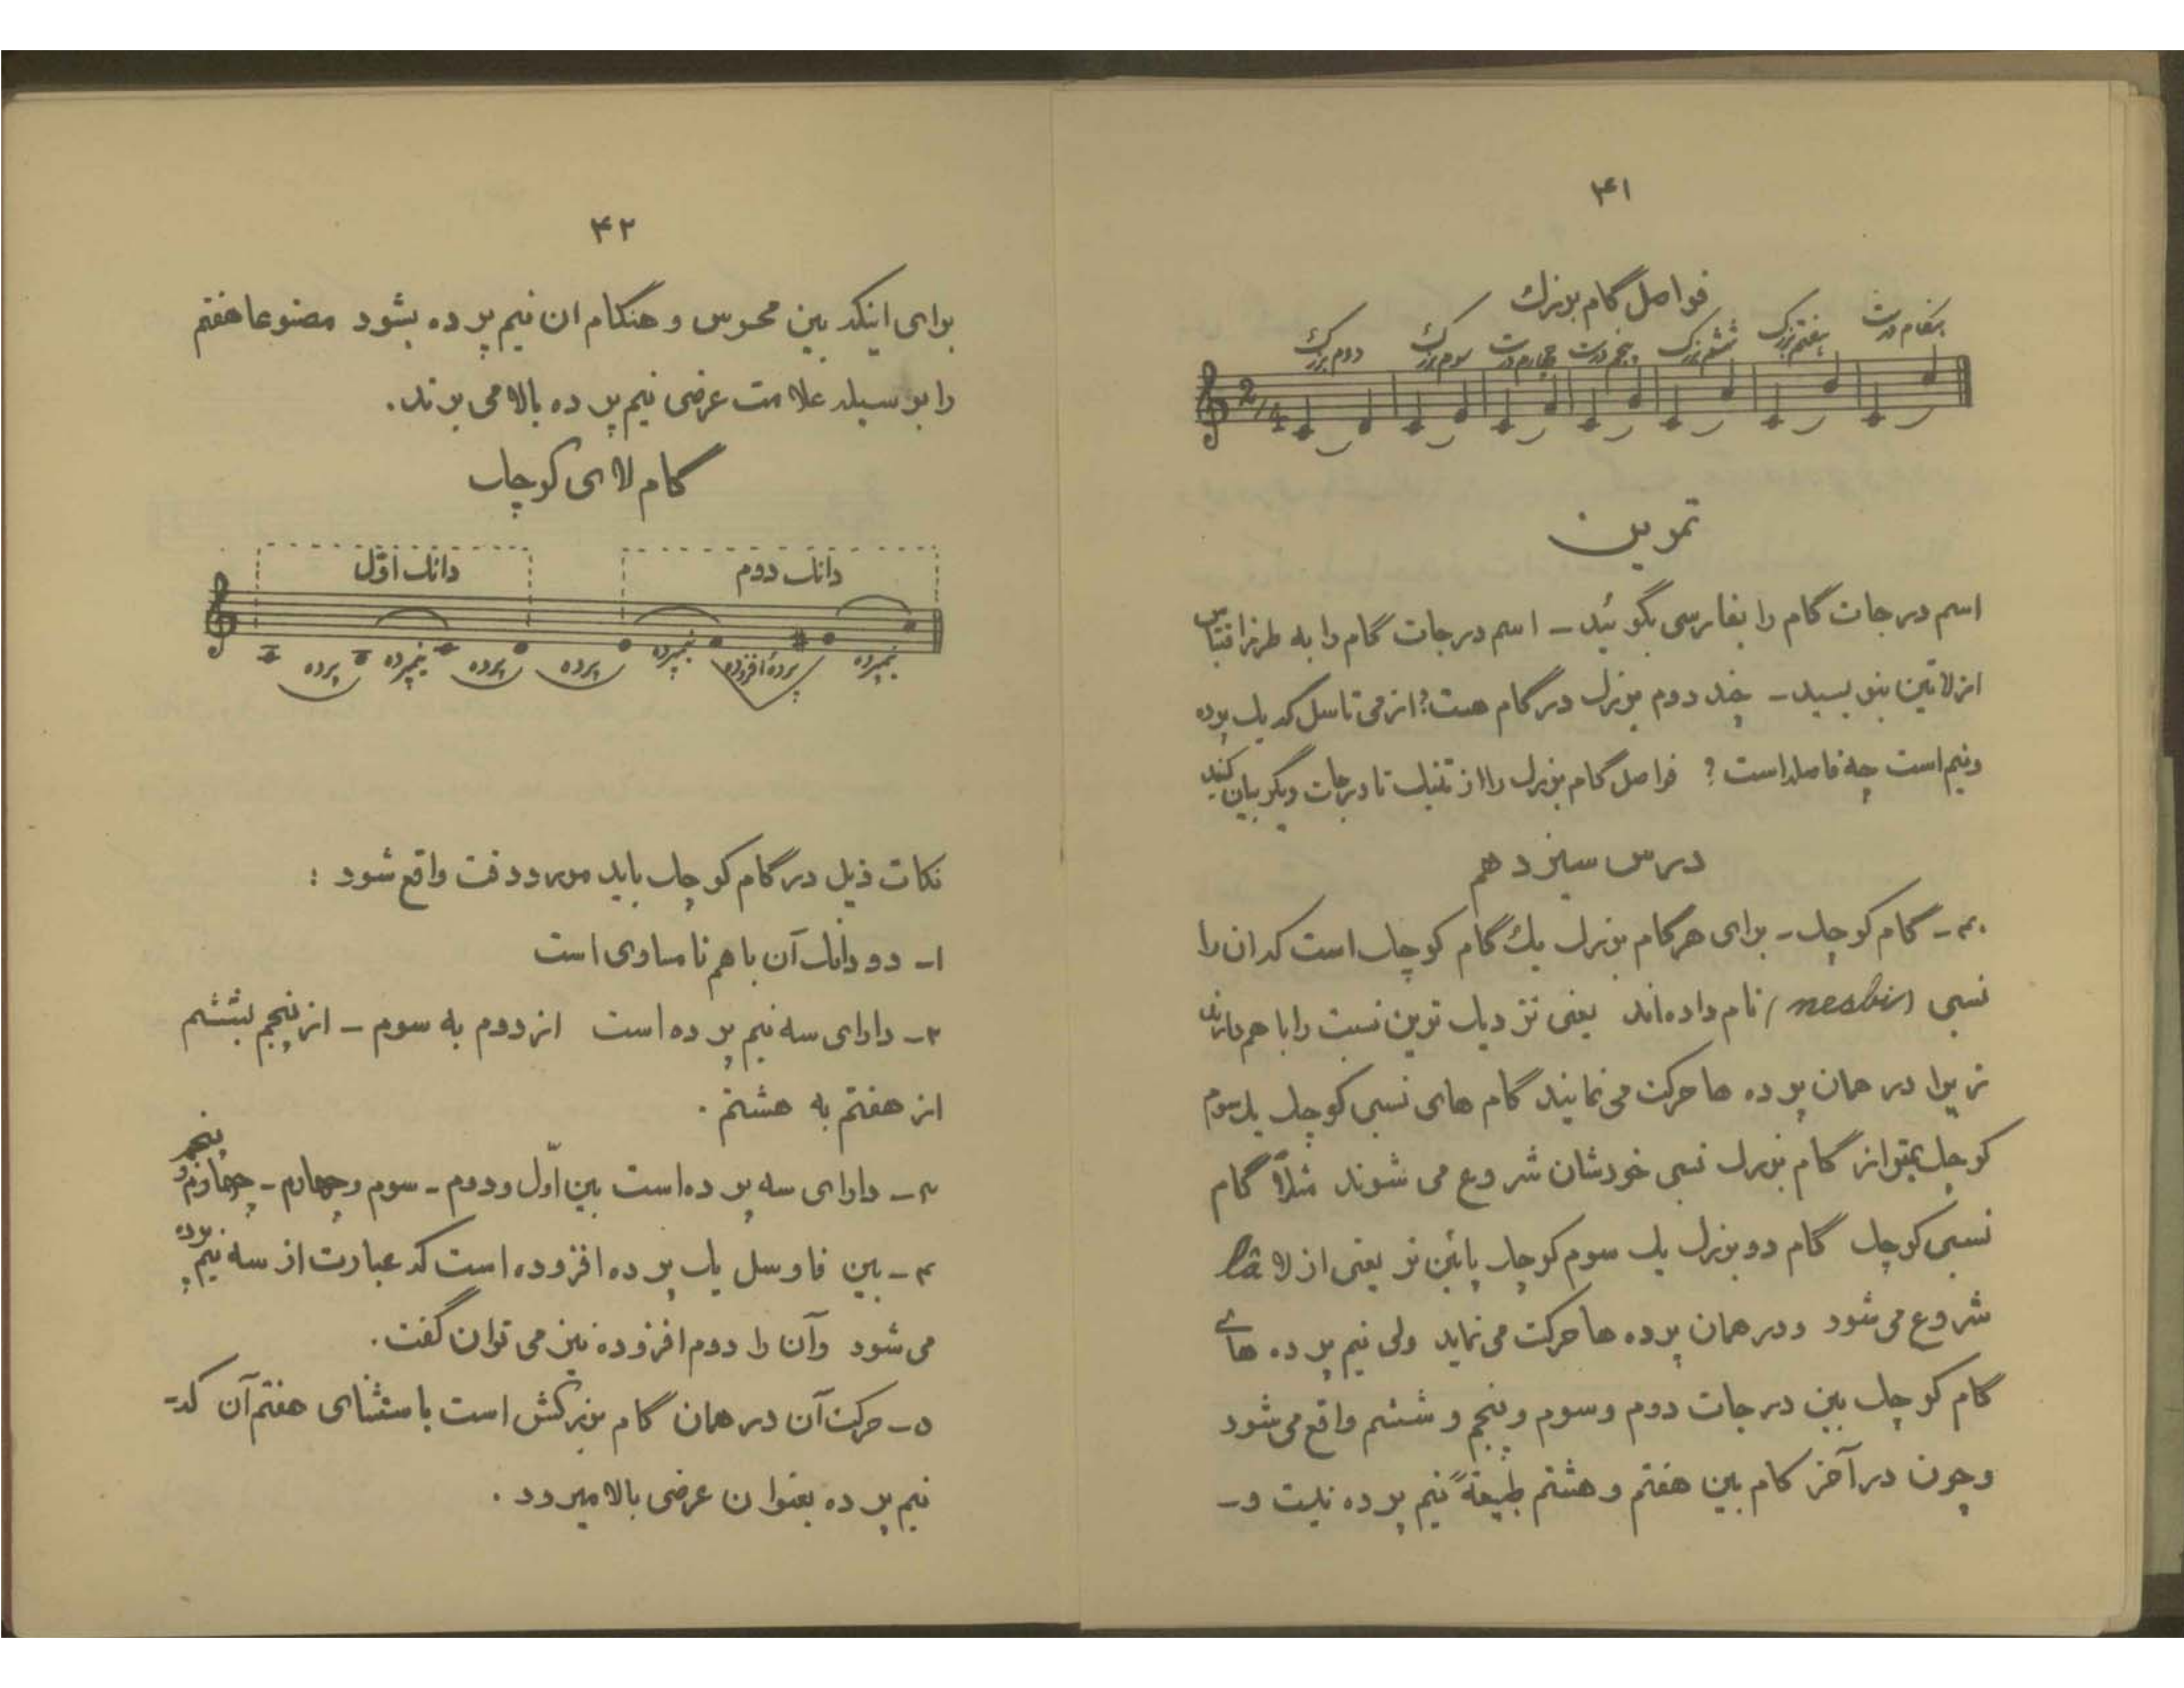 ۴۱
فواصل گام بزرگ
دوم بزرگ سوم بزرگ چهارم درست پنجم درست ششم بزرگ هفتم بزرگ هنگام درست
2/4
تمرین
اسم درجات گام را بفارسی بگوئید ـ اسم درجات گام را به طرز اقتباس
از لاتین بنویسید ـ چند دوم بزرگ در گام هست؟ از می تا سل که یک پرده
ونیم است چه فاصله است ؟ فواصل گام بزرگ را از تنیک تا درجات دیگر بیان کنید
درس سیزدهم
۴۰ـ گام کوچک ـ برای هر گام بزرگ یک گام کوچک است که ان را
نسبی (nesbi) نام داده‌اند یعنی نزدیک ترین نسبت را با هم دارند
زیرا در همان پرده ها حرکت می نمایند گام های نسبی کوچک یک سوم
کوچک بمتر از گام بزرگ نسبی خودشان شروع می شوند مثلاً گام
نسبی کوچک گام دو بزرگ یک سوم کوچک پائین تر یعنی از لا lâ
شروع می شود و در همان پرده ها حرکت می نماید ولی نیم پرده های
گام کوچک بین درجات دوم و سوم و پنجم و ششم واقع می شود
و چون در آخر گام بین هفتم و هشتم طبیعةً نیم پرده نیست و ـ
۴۲
برای اینکه بین محسوس و هنگام ان نیم پرده بشود مصنوعا هفتم
را بوسیله علامت عرضی نیم پرده بالا می برند.
گام لا ی کوچک
دانک اوّل دانک دوم
پرده نیمپرده پرده پرده نیمپرده پردهٔ افزوده نیمپرده
نکات ذیل در گام کوچک باید مورد دقت واقع شود :
۱ـ دو دانک آن با هم نا مساوی است
۲ـ دارای سه نیم پرده است از دوم به سوم ـ از پنجم بششم
از هفتم به هشتم .
۳ـ دارای سه پرده است بین اوّل و دوم ـ سوم و چهارم ـ چهارم و پنجم
۴ـ بین فا و سل یک پرده افزوده است که عبارت از سه نیم پرده
می شود وآن را دوم افزوده نیز می توان گفت.
۵ـ حرکت آن در همان گام بزرگش است باستثنای هفتم آن که ـ
نیم پرده بعنوان عرضی بالا میرود .